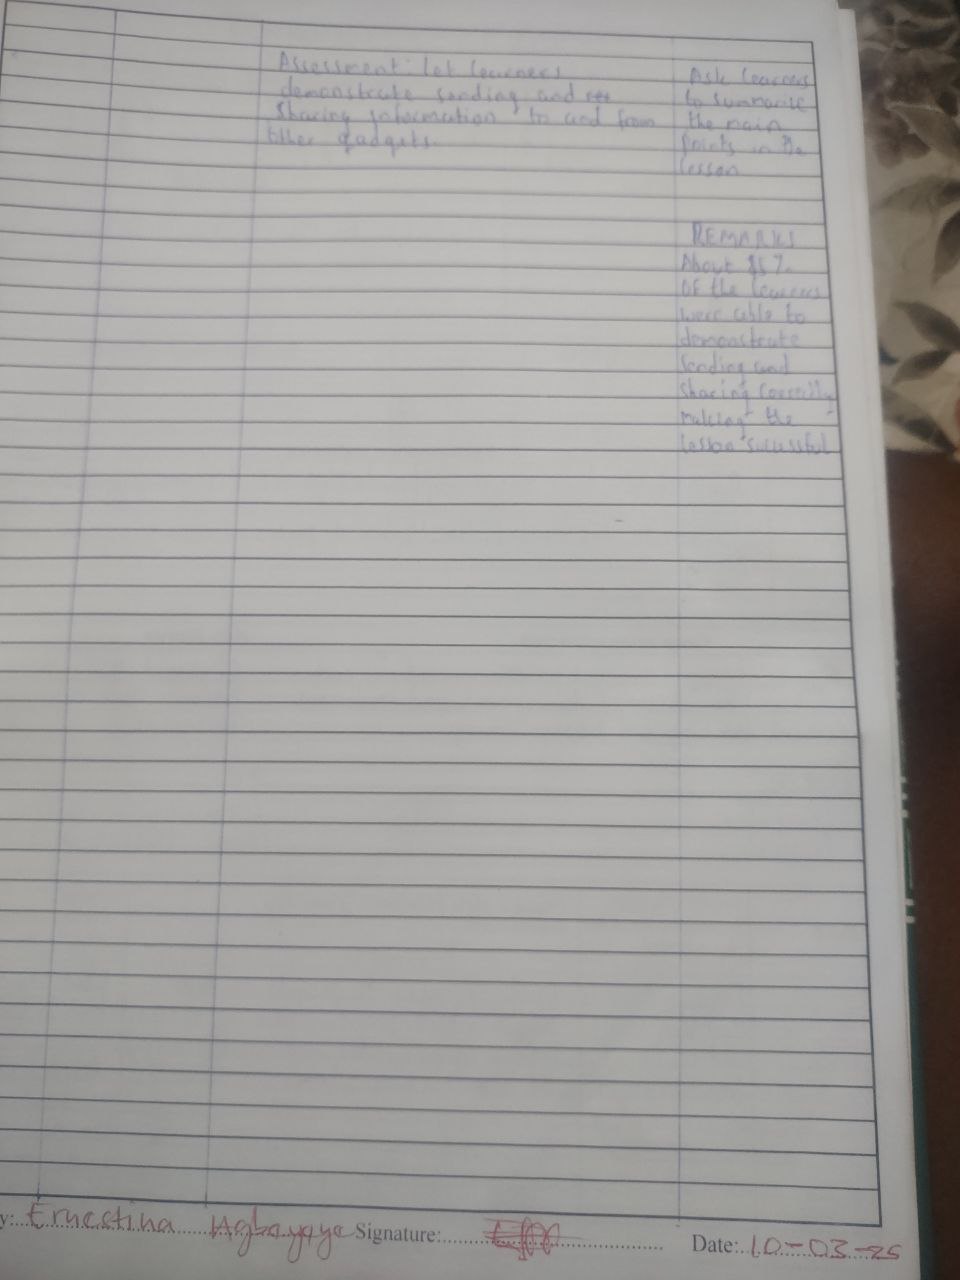 Assessment: let learners
demonstrate sending and
Sharing information to and from
other gadgets.
Ask learners
to summarise
the main
points in the
lesson
REMARKS
About 85%
OF the learners
were able to
demonstrate
sending and
sharing correctly
making the
lesson sucessful
y: Ernestina Agbayaye Signature: Date: 10-03-25